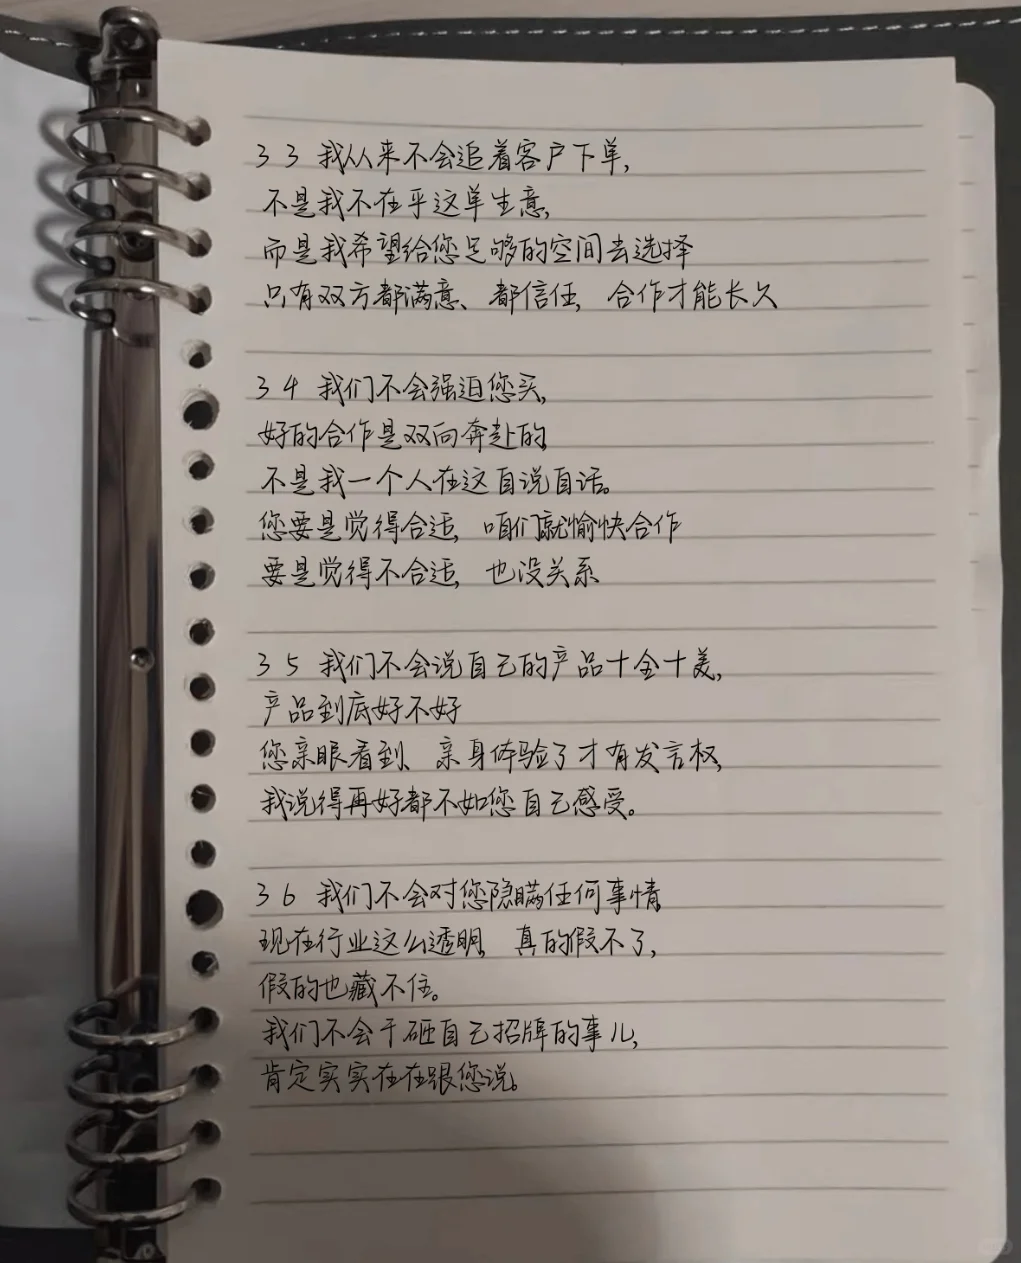 33 我从来不会追着客户下单,
不是我不在乎这单生意,
而是我希望给您足够的空间去选择
只有双方都满意、都信任, 合作才能长久
34 我们不会强迫您买,
好的合作是双向奔赴的,
不是我一个人在这自说自话。
您要是觉得合适, 咱们就愉快合作
要是觉得不合适, 也没关系
35 我们不会说自己的产品十全十美,
产品到底好不好
您亲眼看到、亲身体验了才有发言权,
我说得再好都不如您自己感受。
36 我们不会对您隐瞒任何事情,
现在行业这么透明, 真的假不了,
假的也藏不住。
我们不会干砸自己招牌的事儿,
肯定实实在在跟您说。